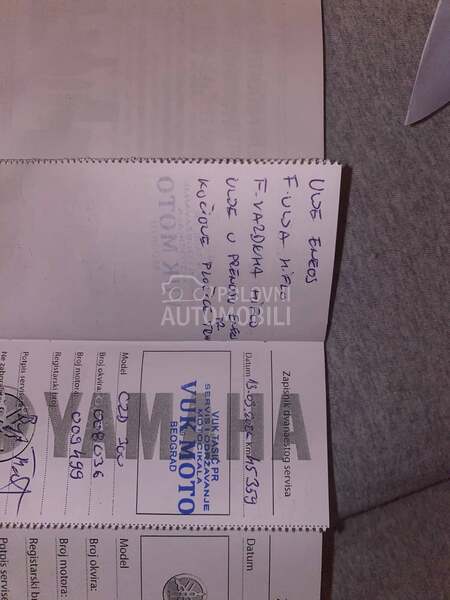 ULJE ENEOS
F. ULJA HIFLO
F. VAZDUHA HIFLO
ULJE U PRENOSU
KOČIONE PLOČICE
POLOVNI
AUTOMOBILI
Zapisnik dvanaestog servisa
Datum Km: 15359
VUK TASIĆ PR
SERVIS I ODRŽAVANJE
MOTOCIKALA
VUK MOTO
BEOGRAD
Model CZD 300
Broj okvira: 008036
Broj motora: 009499
Registarski broj
Potpis servisa
YAMAHA
Datum
Model
Broj okvira:
Broj motora:
Registarski
Potpis servisa